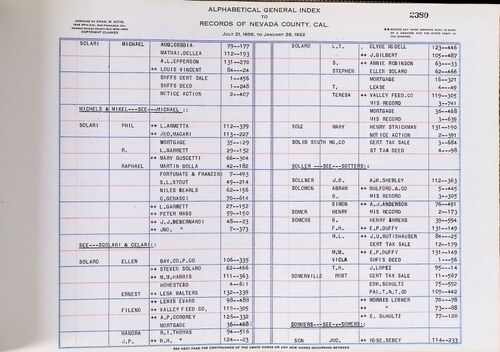 ALPHABETICAL GENERAL INDEX
TO
RECORDS OF NEVADA COUNTY, CAL.
JULY 21, 1856, TO JANUARY 28, 1922
2389
COPYRIGHT CLAIMED
SOLARI MICHAEL AUG, 79—177
MATHAI, DELLER 112—193
A.L, EPPERSON 131—270
++ LOUIS VINCENT 84—24
SHFFS CERT SALE 1—456
SHFFS DEED 1—248
NOTICE ACTION 2—407
MICHELS & MIKEL—SEE—MICHAEL:
SOLARI PHIL ++ L, ARMETTA 112—379
++ JNO, MAGARI 113—227
MORTGAGE 35—129
R. L, GARRETT 29—152
++ MARY GUSCETTI 66—304
RAPHAEL MARTIN BOLLA 42—182
FORTUNATE & FRANZENI 7—493
S.L, STOUT 49—214
NILES BEARLS 62—156
C, GENASCI 70—614
++ L, GARRETT 27—152
++ PETER MASS 59—150
++ J.J, DEBERNARDI 48—23
++ JNO, " 7—373
SEE---SCOLARI & CELARI::
SOLARO ELLEN BAY, CO, P, CO 106—335
++ STEVEN SOLARO 62—466
++ W.M, HARRIS 111—363
HOMESTEAD 4—611
ERNEST ++ LENA WALTERS 132—339
++ LEWIS EVANS 98—488
FILENO ++ VALLEY FEED, CO, 119—305
++ A.P, CORDREY 126—332
MORTGAGE 36—468
NANORA R.I, THOMAS 94—516
J.P. ++ R.H, " 124—23
SOLARO L.T. CLYDE ODELL 123—446
++ J, GILBERT 105—487
S. ++ ANNIE ROBINSON 63—33
STEPHER ELLEN SOLARO 62—466
MORTGAGE 18—321
T. LEASE 4—49
TERESA ++ VALLEY FEED, CO 119—305
HIS RECORD 3—241
MORTGAGE 36—468
HIS RECORD 3—639
SOLE MARY HENRY STRICKMAN 131—190
NOTICE ACTION 2—391
SOLID SOUTH MG, CO CERT TAX SALE 3—684
ST TAX DEED 4—98
SOLLER ---SEE---SOTTERS::
SOLLNER J.D. A.U, SHEBLEY 112—363
SOLOMON ABRAM ++ MULFORD, & CO 5—445
B. HIS RECORD 3—305
SIMON ++ A.J, ANDERSON 76—491
SOMER HENRY HIS RECORD 2—173
SOMERS B. HENRY AHRENS 39—594
F.H. ++ E.P, DUFFY 131—149
M.L. ++ J.J, RUTISHAUSER 84—25
CERT TAX SALE 12—179
M.M. ++ E.P, DUFFY 131—149
VIOLA SHFFS DEED 1—56
T.H. J, LOPEZ 95—14
SOMERVILLE ROBT CERT TAX SALE 11—567
EDW, SCHMIDT 75—592
PAC, T, & T, CO 105—442
++ MORRIS LOBNER 70—78
++ " 73—88
++ E, SCHMIDT 77—120
SOMMERS---SEE---SOMERS::
SON JNO ++ HOSE, SEBEY 114—233